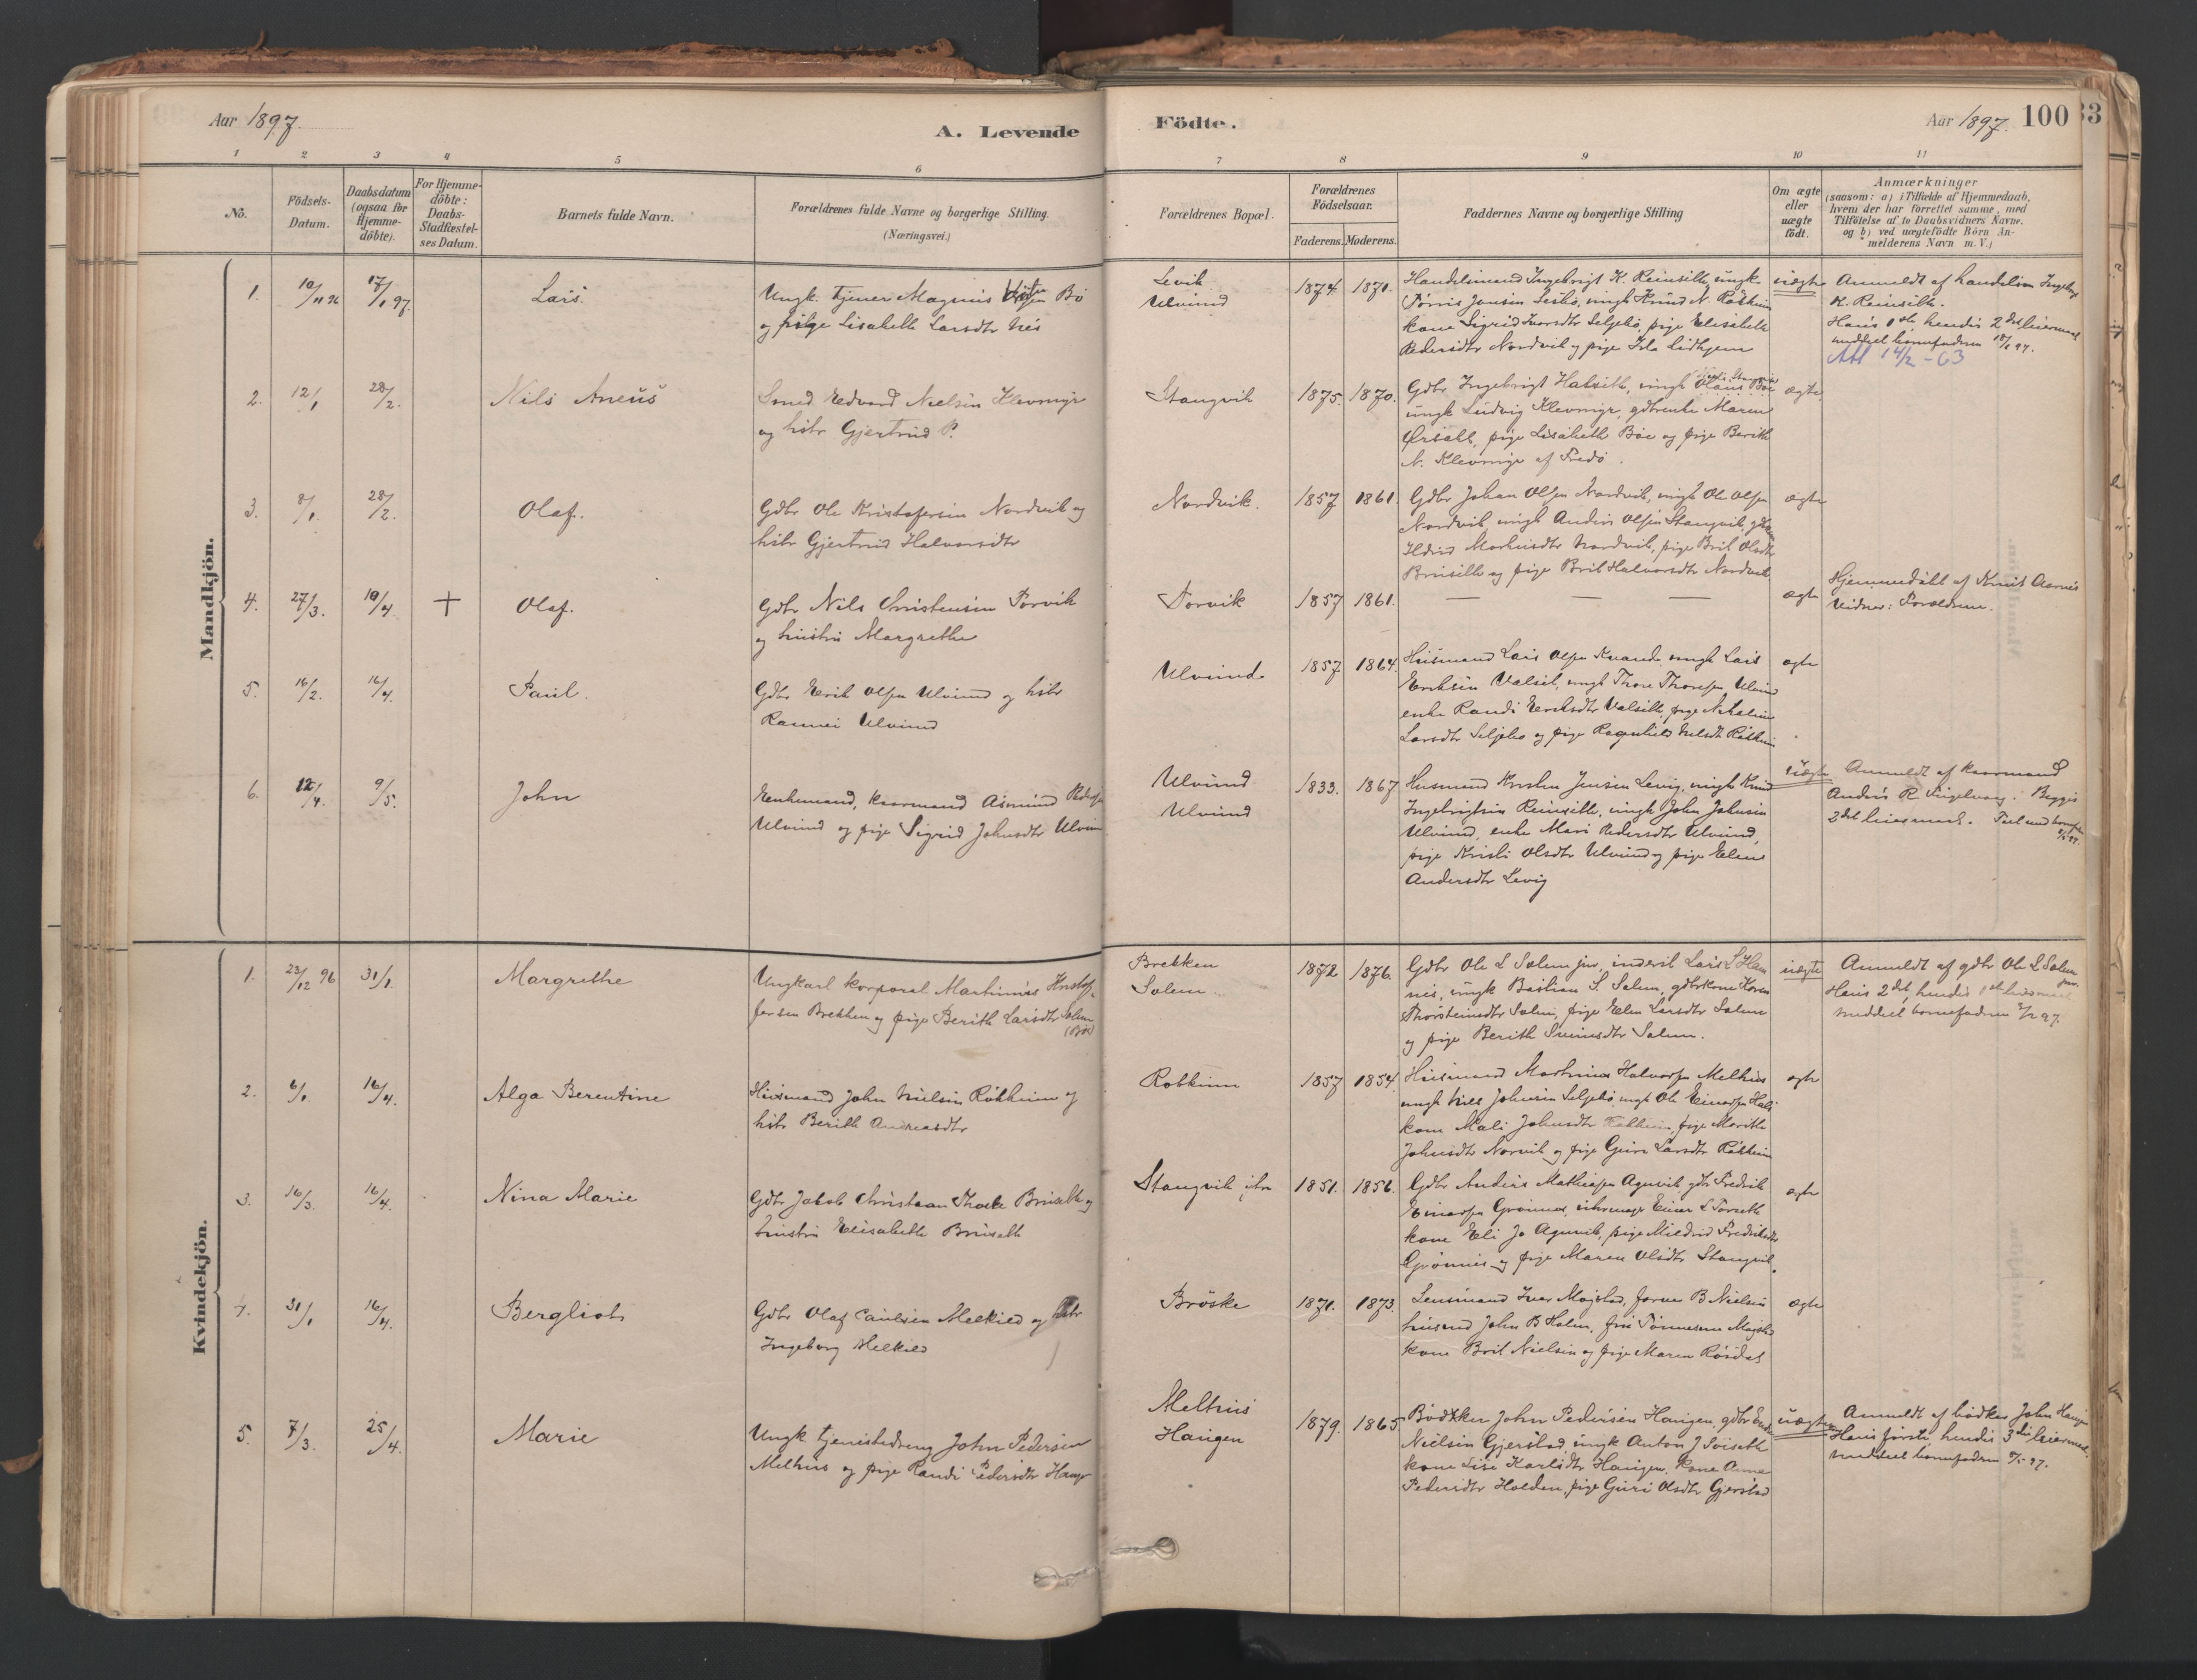 Aar 1897.
A. Levende
Födte.
Aar 1897. 100
33
1 2 3 4 5 6 7 8 9 10 11
No.
Födsels-
Datum.
Daabsdatum
(ogsaa for
Hjemme-
döbte).
For Hjemme-
döbte:
Daabs-
Stadfæstel-
ses Datum.
Barnets fulde Navn.
Forældrenes fulde Navne og borgerlige Stilling.
(Næringsvei.)
Forældrenes Bopæl.
Forældrenes
Födselsaar.
Faderens. Moderens.
Faddernes Navne og borgerlige Stilling
Om ægte
eller
uægte
födt.
Anmærkninger
(saasom: a) i Tilfælde af Hjemmedaab,
hvem der har forrettet samme, med
Tilföielse af to Daabsvidners Navne.
og b) ved uægtefödte Börn An-
melderens Navn m. V.)
Mandkjön.
1. 10/11 96 17/1 97. Lars.
Ungk. tjener Magnus Bö
og pige Lisabeth Larsdtr Nes
Levik
Ulvund
1874. 1871.
Handelsmand Ingebrigt K. Reinsett, ungk
kone Sigrid Ivarsdtr Seljebö, pige Elisabeth
Pedersdtr Nordvik og pige
uægte
Anmeldt af handelsm Ingebrigt
K. Reinseth.
Hans 1ste, hendes 2det leiermaal
meddeelt barnefadren
Att 14/2-63
2. 12/1 28/2. Nils Aneus
Smed Edvard Nielsen Klevmyr
og hstr Gjertrud P.
Stangvik
1875. 1870.
Gdbr Ingebrigt Halseth, ungk Olaus Böe
ungk Ludvig Klevmyr, gdbrenke Maren
pige Lisabeth Böe og pige Berith
N. Klevmyr af Fredö.
ægte
3. 8/1. 28/2. Olaf.
Gdbr Ole Kristofersen Nordvik og
hstr Gjertrud Halvorsdtr
Nordvik.
1857 1861.
Gdbr Johan Olsen Nordvik, ungk Ole Olsen
Nordvik, ungk Anders Olsen Stangvik,
Nordvik, pige Brit Olsdtr
Bruseth og pige Brit Halvorsdtr Nordvik
ægte
4. 27/3. 19/4. + Olaf.
Gdbr Nils Christensen Torvik
og hustru Margrethe
Torvik
1857 1861.
— — —
ægte
Hjemmedöbt af Knut Aarnes
Vidner: Forældrene.
5. 16/2. 16/4. Paul.
Gdbr Erik Olsen Ulvund og hstr
Rannei Ulvund
Ulvund.
1857. 1864.
Husmand Lars Olsen Kvande, ungk Lars
Eriksen Valset, ungk Thore Thoresen Ulvund
enke Randi Eriksdtr Valseth, pige
Larsdtr Seljebö og pige Ragnhild Nilsdtr Rötheim
ægte
6. 12/4. 9/5. John
Enkemand, kaarmand Asmund Pedersen
Ulvund og pige Sigrid Johnsdtr Ulvund
Ulvund
Ulvund
1833. 1867
Husmand Jensen Levig, ungk Knud
Ingebrigtsen Reinseth, ungk John Johnsen
Ulvund, enke Mari Pedersdtr Ulvund,
pige Kristi Olsdtr Ulvund og pige Elene
Andersdtr Levig
uægte
Anmeldt af kaarmand
Anders R. Begges
2det leiermaal.
Kvindekjön.
1. 23/12 96 31/1. Margrethe
Ungkarl korporal Martinus Kristof-
fersen Brekken og pige Berith Larsdtr Solem
(Böe)
Brekken
Solem.
1872. 1876.
Gdbr Ole L Solem jnr, inderst Lars L Ham
nes, ungk Bastian S. Solem, gdbrkone Karen
Thorsteinsdtr Solem, pige Elen Larsdtr Solem
og pige Berith Sveinsdtr Solem.
uægte
Anmeldt af gdbr Ole L Solem
jnr.
Hans 2det, hendes 1ste leiermaal
meddeelt barnefadren 97.
2. 6/1. 16/4. Alga Berentine
Husmand John Nielsen Rötheim og
hstr Berith Andreasdtr
Rotheim
1857 1854.
Husmand Martinus Halvorsen Melhus
ungk Nils Johnsen Seljebö, ungk Ole Einarsen
kone Mali Johnsdtr Rötheim, pige Marith
Johnsdtr Norvik og pige Guru Larsdtr Rötheim
ægte
3. 16/3. 16/4. Nina Marie
Gdbr Jakob Christian Bruseth og
hustru Elisabeth Bruseth
Stangvik
1851. 1856.
Gdbr Anders Mathiasen Agnvik, gdbr Fredrik
Einarsen Grönnes, Einar L Torseth
kone Eli J. Agnvik, pige Mildrid Fredriksdtr
Grönnes og pige Maren Olsdtr Stangvik.
ægte
4. 31/1. 16/4. Bergliot
Gdbr Olaf Paulsen Melkild og hstr
Ingeborg Melkild
Bröske
1871. 1873.
Lensmand Iver Mogstad, B Nielsen
John B Holm, Mogstad
kone Brit Nielsen og pige Maren Rösdal
ægte
5. 7/3. 25/4. Marie
Ungk. tjenestedreng John Pedersen
Melhus og pige Randi Pedersdtr Haugen
Melhus
Haugen
1879. 1865.
Bödtker John Pedersen Haugen, gdbr
Nielsen Gjerstad, ungk Anton J Soiseth
kone Lise Karlsdtr Haugen, kone Anne
Pedersdtr Holden, pige Guri Olsdtr Gjerstad
uægte
Anmeldt af bödker John Haugen
Hans förste, hendes 3die leiermaal.
meddeelt barnefadren 97.